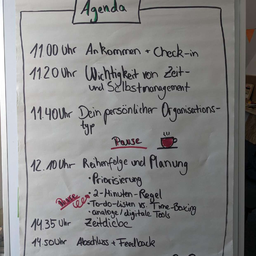 Agenda
11 00 Uhr Ankommen + Check-in
11 20 Uhr Wichtigkeit von Zeit-
und Selbstmanagement
11.40 Uhr Dein persönlicher Organisations-
typ
Pause
12.10 Uhr Reihenfolge und Planung
• Priorisierung
• 2-Minuten-Regel
Pause
• To-do-Listen vs. Time-Boxing
• analoge/digitale Tools
14 35 Uhr
14 50 Uhr Abschluss + Feedback